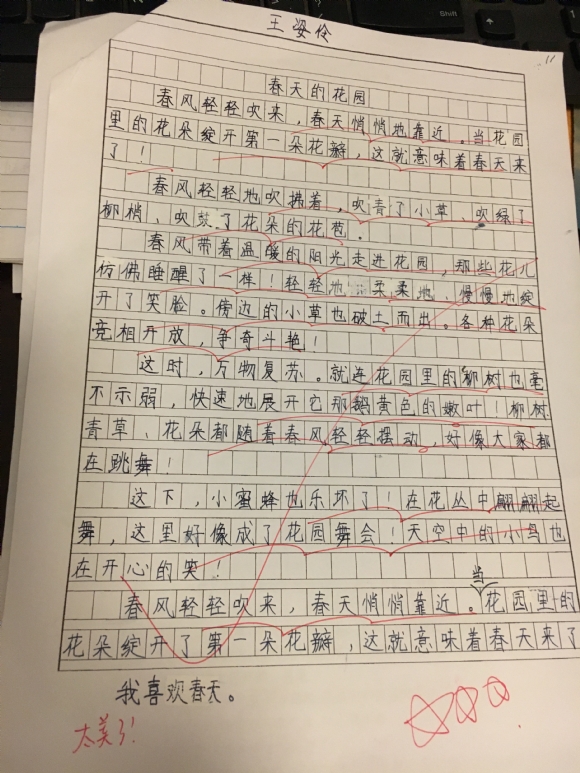 王姿伶
春天的花园
春风轻轻吹来，春天悄悄地靠近。当花园
里的花朵绽开第一朵花瓣，这就意味着春天来
了！
春风轻轻地吹拂着，吹青了小草、吹绿了
柳梢、吹鼓了花朵的花苞。
春风带着温暖的阳光走进花园，那些花儿
仿佛睡醒了一样！轻轻地、柔柔地、慢慢地绽
开了笑脸。傍边的小草也破土而出。各种花朵
竞相开放，争奇斗艳！
这时，万物复苏。就连花园里的柳树也毫
不示弱，快速地展开它那鹅黄色的嫩叶！柳树、
青草、花朵都随着春风轻轻摆动，好像大家都
在跳舞！
这下，小蜜蜂也乐坏了！在花丛中翩翩起
舞，这里好像成了花园舞会！天空中的小鸟也
在开心的笑！
当
春风轻轻吹来，春天悄悄靠近。花园里的
花朵绽开了第一朵花瓣，这就意味着春天来了
我喜欢春天。
太美了！
Shift